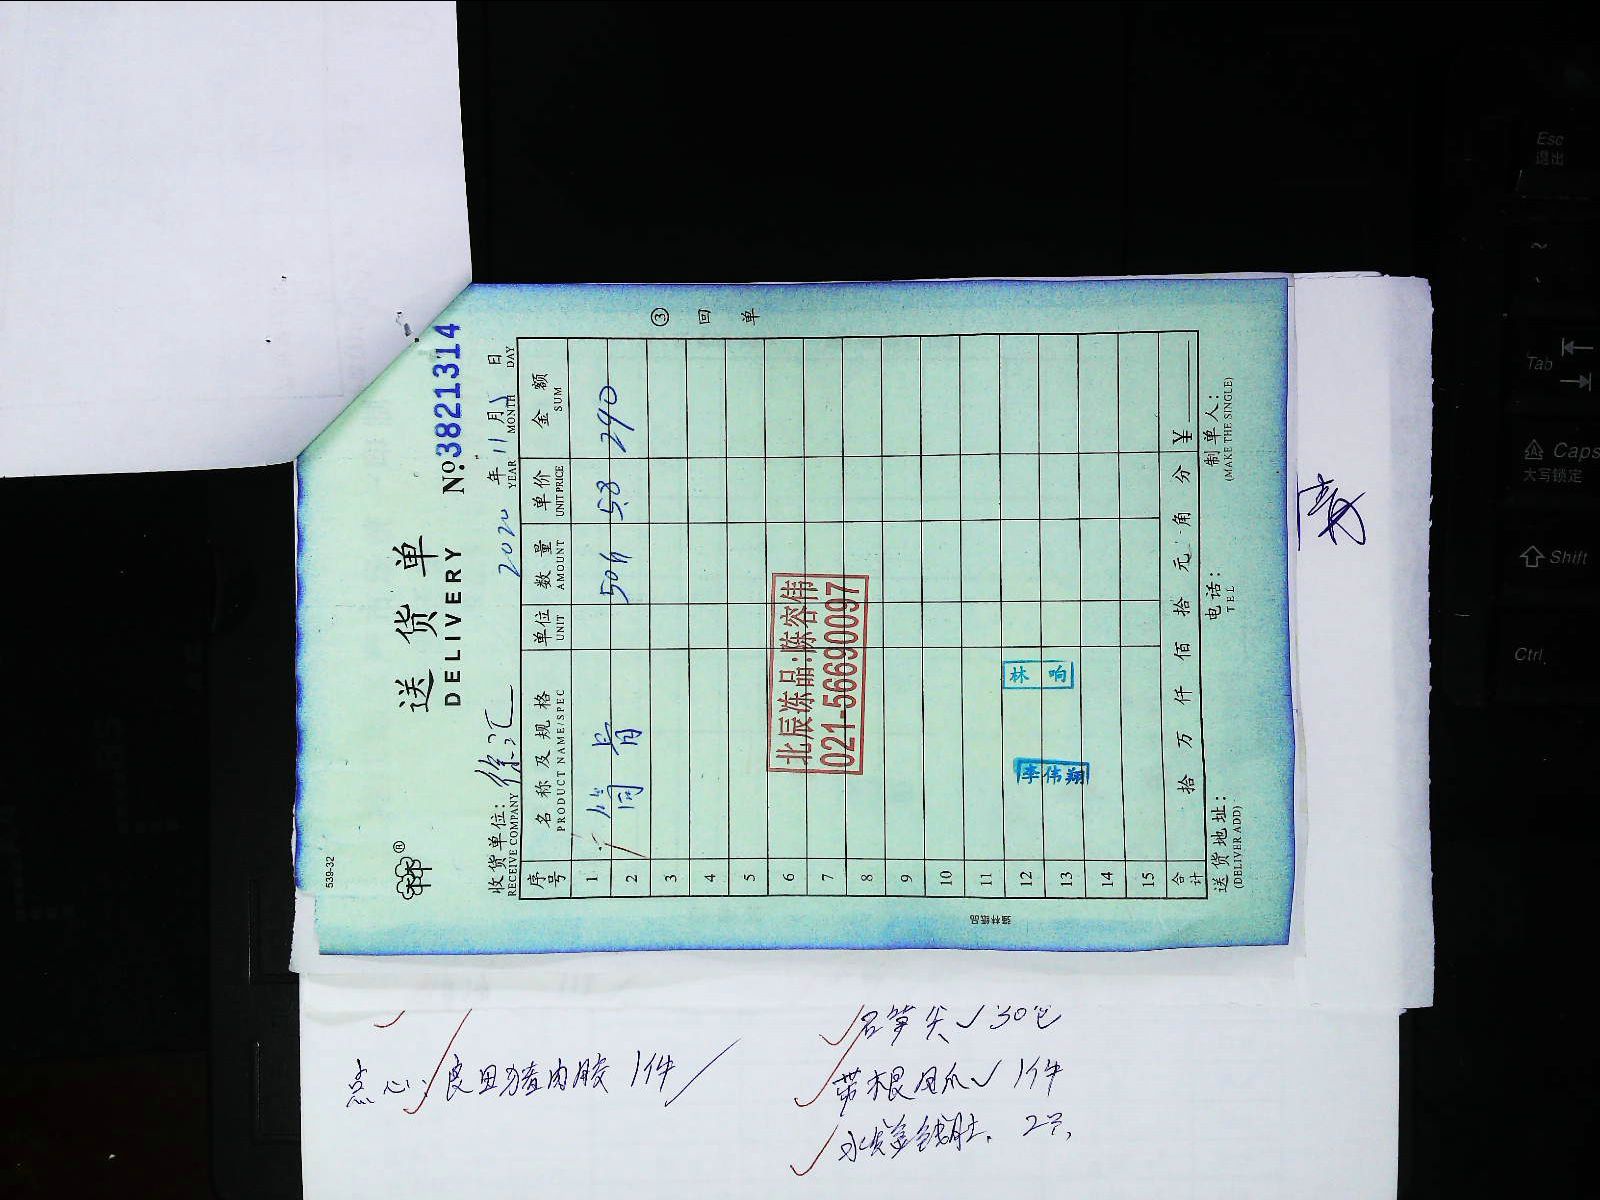 539-32
送货单
DELIVERY
№3821314
收货单位: 徐汇
RECEIVE COMPANY
2020 年 11 月 5 日
YEAR MONTH DAY
序号 名称及规格 单位 数量 单价 金额
PRODUCT NAME/SPEC UNIT AMOUNT UNIT PRICE SUM
1 筒骨 50斤 5.8 290
2
3
4
5
6
7
8
9
10
11
12
13
14
15
北辰冻品:陈容伟
021-56690097
林响
李伟翔
合计 拾 万 仟 佰 拾 元 角 分 ¥
送货地址: 电话: 制单人:
(DELIVER ADD) TEL (MAKE THE SINGLE)
③ 回单
强林纸品
石笋尖 30包
点心: 良田猪肉胶 1件
带根凤爪 1件
Esc
退出
Tab
Caps
大写锁定
Shift
Ctrl